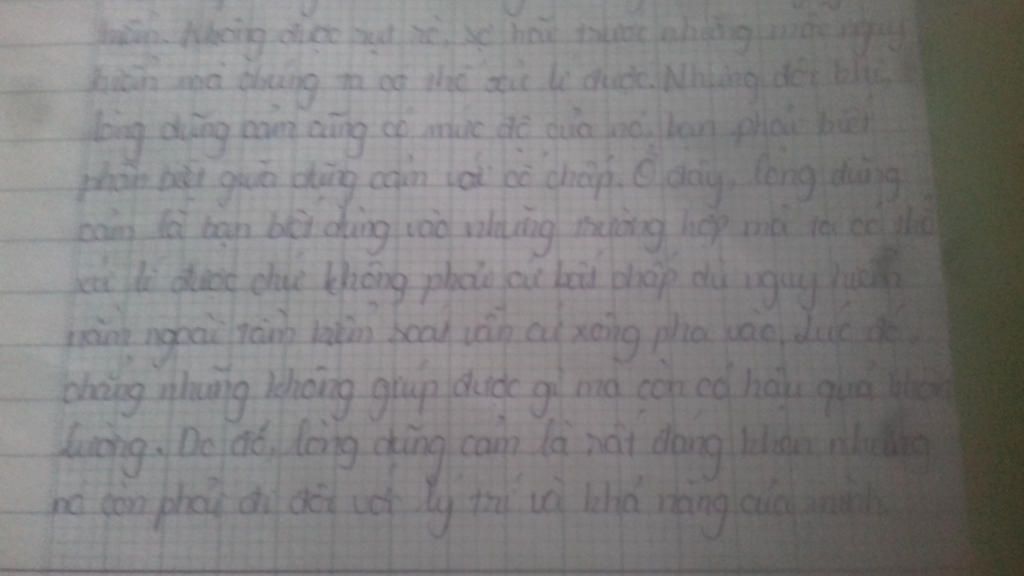 hiểm. Không được rụt rè, sợ hãi trước những mối nguy
hiểm mà chúng ta có thể xử lí được. Nhưng đôi khi,
lòng dũng cảm cũng có mức độ của nó, bạn phải biết
phân biệt giữa dũng cảm với cố chấp. Ở đây, lòng dũng
cảm là bạn biết dùng vào những trường hợp mà ta có thể
xử lí được chứ không phải cứ bất chấp dù nguy hiểm
nằm ngoài tầm kiểm soát vẫn cứ xông pha vào. Lúc đó,
chẳng những không giúp được gì mà còn có hậu quả khôn
lường. Do đó, lòng dũng cảm là rất đáng khen nhưng
nó còn phải đi đôi với lý trí và khả năng của mình.